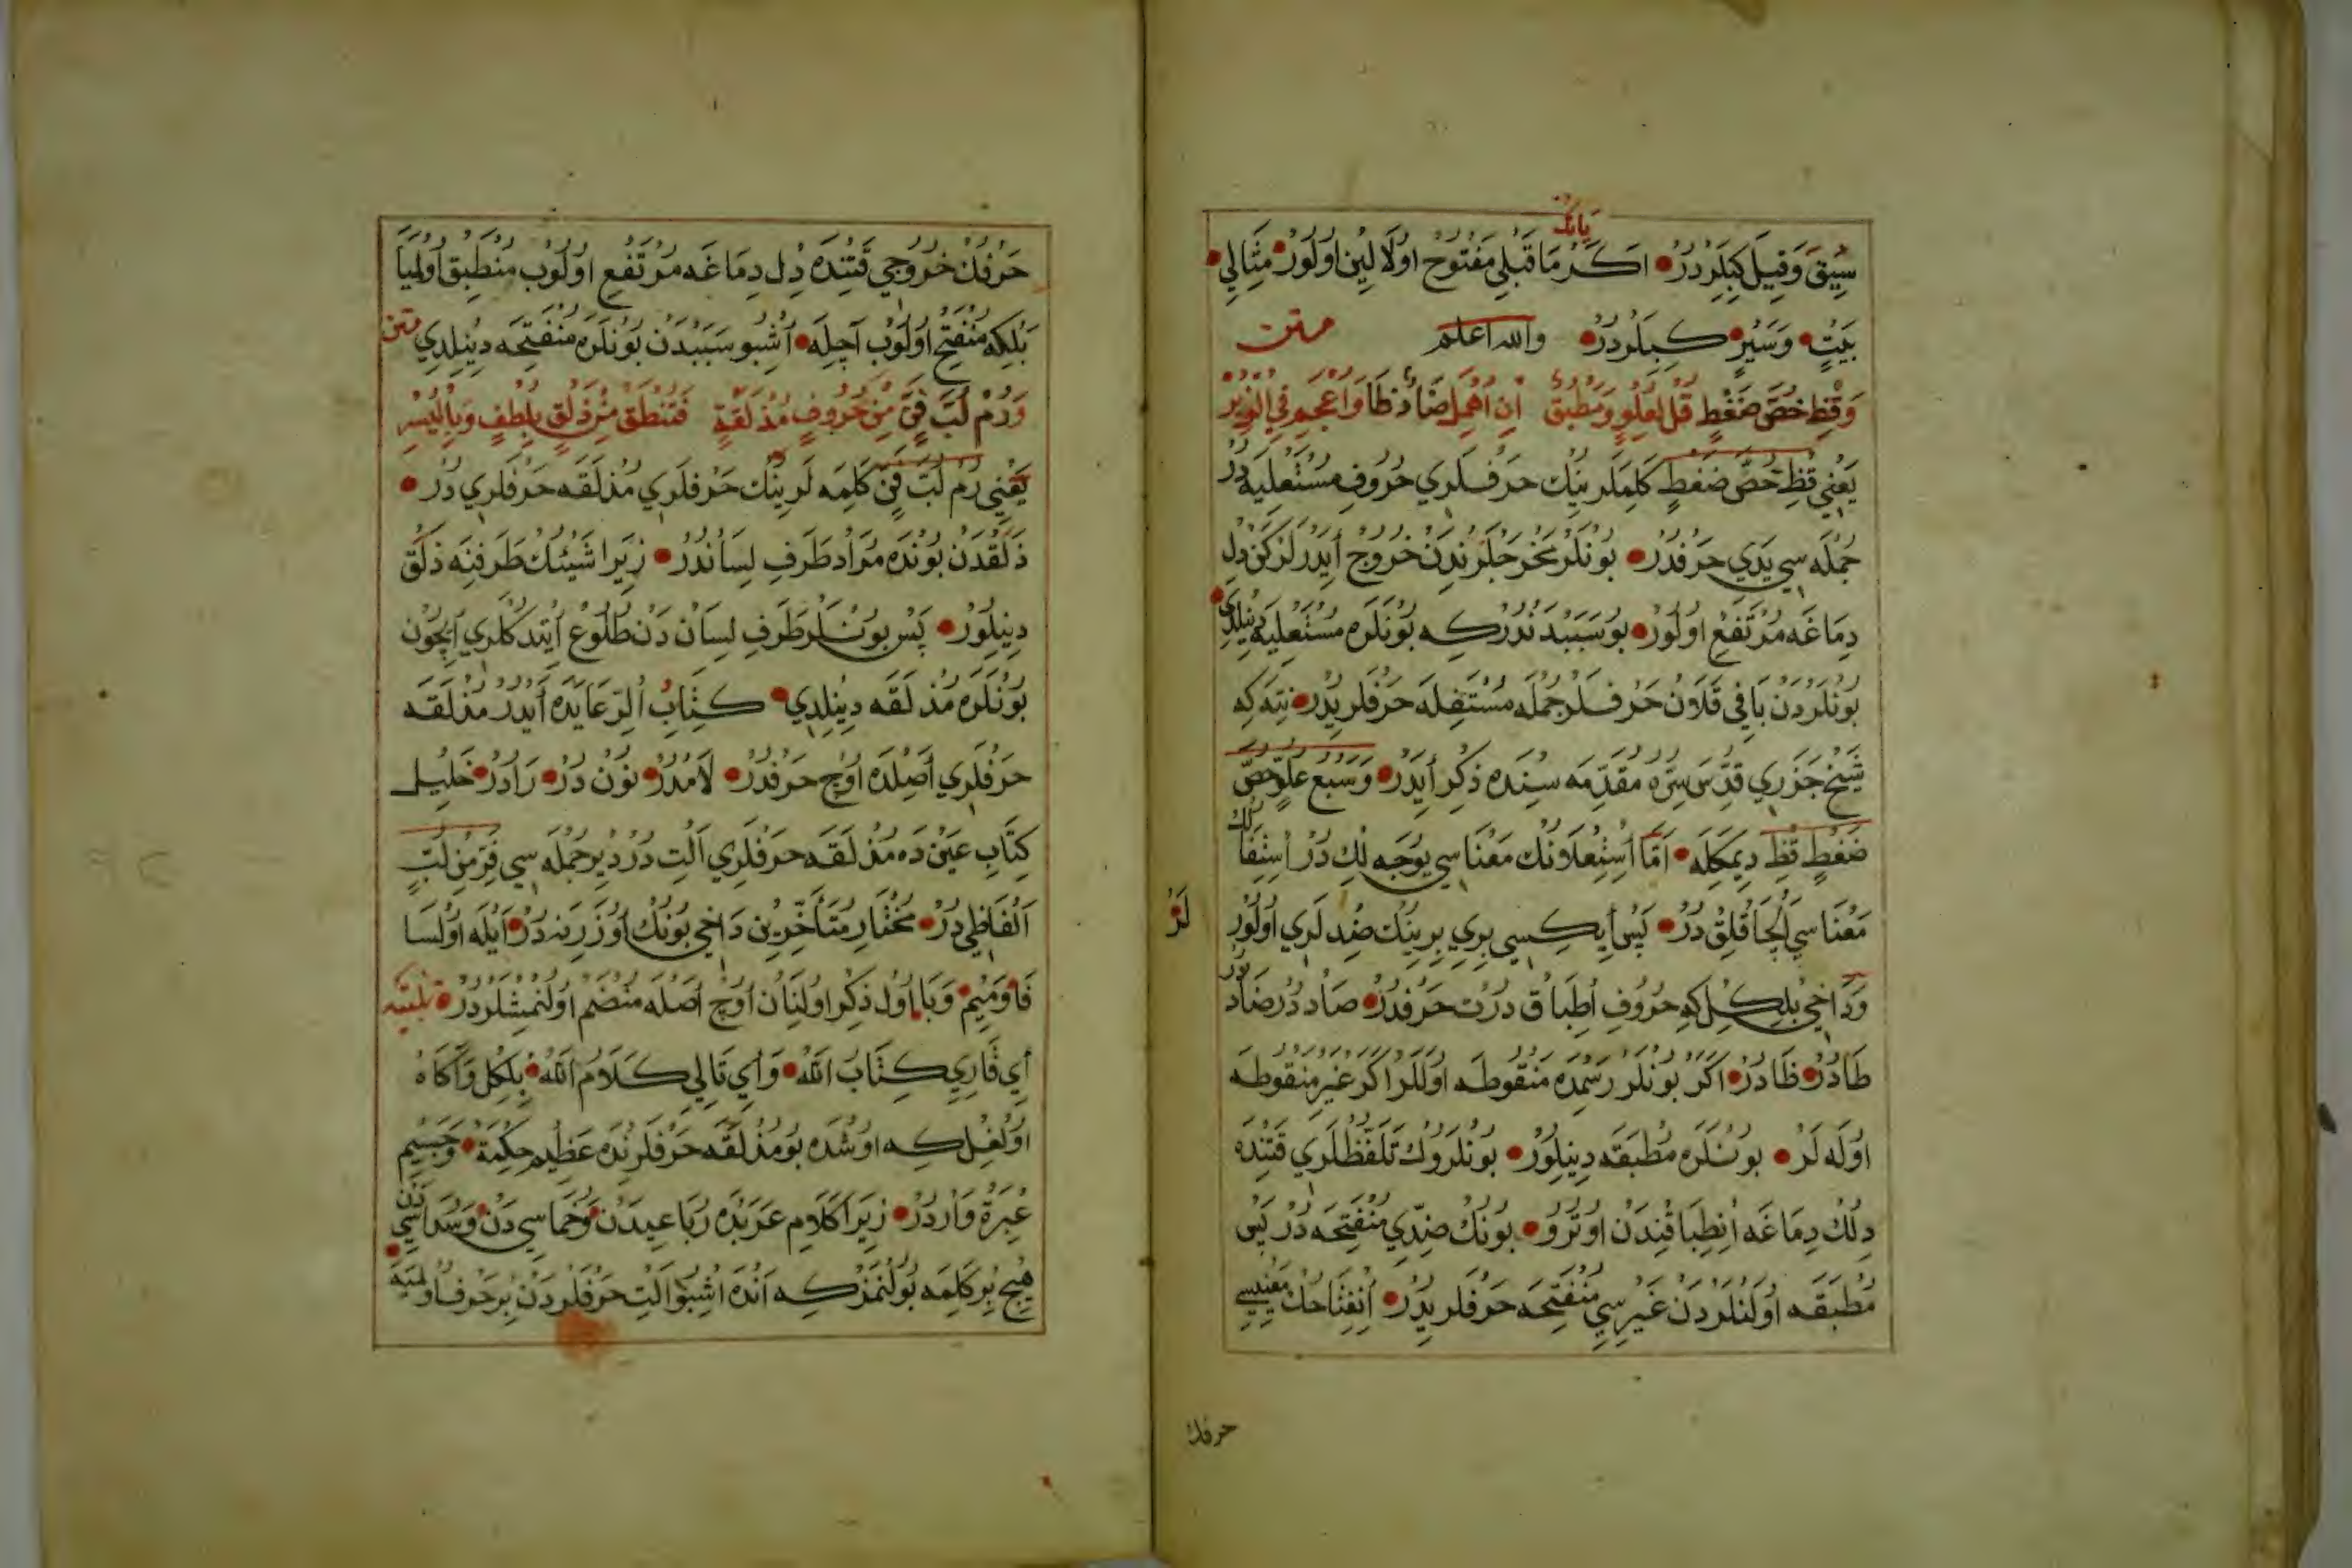 يانك
سِيقَ وَقِيلَ كِبِلَرْدَرْ اَكَرْ مَا قَبْلِي مَفْتُوحْ اولَا لِينْ اولُورْ مِثَالِي
بَيْتٍ وَسَيْرٍ كِبِلَرْدَرْ والله اعلم متن
وَقِظْ خُصَّ ضَغْطٍ قُلْ لعُلوٍ وَمُطبق اِن اُهْمِلَ صَادْ طَا وَاُعْجِمَ فِي
يَعْنِي قِظْ خُصَّ ضَغْطٍ كَلِمَلَرِينِكْ حَرْفلَرِي حُرُوفِ مُسْتَعْلِيَه دُرْ
جُمْلَه سِي يَدِي حَرْفدُرْ بُونْلَرْ مَخْرَجلَرِنْدَنْ خُرُوجْ اَيْدَرْلَرْكَنْ دِلْ
دِمَاغَه مُرْتَفِعْ اولُورْ بُو سَبَبدَنْدُرْكِه بُونْلَرَه مُسْتَعْلِيَه دِينِلْدِي
بُونْلَرْدَنْ بَاقِي قَلَانْ حَرْفلَرْ جُمْلَه مُسْتَفِلَه حَرْفلَرِيدُرْ نِتَه كِه
شَيْخ جَزَرِي قُدِّسَ سِرُّه مُقَدِّمَه سِنْدَه ذِكْر اَيْدَرْ وَسَبْع عُلْوٍ خُصَّ
ضَغْطٍ قِظْ دِيمَكِلَه اَمَّا اُسْتِعْلَانُكْ مَعْنَاسِي يُوجَه لِكْ دُرْ اِسْتِفَالُكْ
مَعْنَاسِي اَلْچَاقْلِقْ دُرْ پَسْ اِيكِسِي بِرِي بِرِينِكْ ضِدلَرِي اولُورْلَرْ
وَدَاخِي بِلْكِلْ كِه حُرُوفِ اِطْبَاق دُرْت حَرْفدُرْ صَاد دُرْ ضَاد دُرْ
طَادُرْ ظَادُرْ اَكَرْ بُونْلَرْ رَسْمدَه مَنْقُوطَه اولَلَرْ اَكَرْ غَيْرِ مَنْقُوطَه
اولَه لَرْ بُونْلَرَه مُطْبَقَه دِينِلُورْ بُونْلَرُوكْ تَلَفُّظلَرِي قَتِنْدَه
دِلُكْ دِمَاغَه اِنْطِبَاقِنْدَنْ اوتُرُو بُونُكْ ضِدِّي مُنْفَتِحَه دُرْ پَسْ
مُطْبَقَه اولَنْلَرْدَنْ غَيْرِسِي مُنْفَتِحَه حَرْفلَرِيدُرْ اِنْفِتَاحُكْ مَعْنِسِي
حرفك
حَرْفُكْ خُرُوجِي قَتِنْدَه دِل دِمَاغَه مُرْتَفِع اولُوبْ مُنْطَبِق اولْمَيَا
بَلْكِه مُنْفَتِحْ اولُوبْ آچِلَه اُشْبُو سَبَبدَنْ بُونْلَرَه مُنْفَتِحَه دِينِلْدِي متن
وَرُمْ لُبَّ فِنٍّ مِنْ حُرُوفٍ مُذْلَقَةٍ فَتَنْطِقْ مِنْ ذَلْقٍ بِلُطْفٍ وَبِالْيُسْرِ
يَعْنِي رُمْ لُبَّ فِنٍّ كَلِمَه لَرِينِكْ حَرْفلَرِي مُذْلَقَه حَرْفلَرِي دُرْ
ذَلْقدَنْ بُونْدَه مُرَاد طَرَفِ لِسَانْدُرْ زِيرَا شَيْئُكْ طَرَفِنَه ذَلَقْ
دِينِلُورْ پَسْ بُونْلَرْ طَرَفِ لِسَانْ دَنْ طُلُوعْ اَيْتدكْلَرِي اِيچُونْ
بُونْلَرَه مُذْلَقَه دِينِلْدِي كِتَابُ الرِّعَايَدَه اَيْدُرْ مُذْلَقَه
حَرْفلَرِي اَصِلْدَه اوُچ حَرْفدُرْ لَامْدُرْ نُونْ دُرْ رَادُرْ خَلِيلْ
كِتَابِ عَيْن دَه مُذْلَقَه حَرْفلَرِي اَلْتِ دُرْ دِيرْ جُمْلَه سِي فِرَّ مِنْ لُبٍّ
اَلْفَاظِي دُرْ مُخْتَارِ مُتَأَخِّرِين دَاخِي بُونُكْ اُوزَرِنَه دُرْ اَيْلَه اولْسَا
فَا وَمِيمْ وَبَا اَوَّل ذِكْر اولِنَانْ اوُچ اَصْلَه مُنْضَم اولِنْمِشْلَرْدُرْ تنبيه
اَي قَارِي كِتَابُ اللّٰه وَاَي تَالِي كَلَامُ اللّٰه بِلْكِل وَاكَاهْ
اولْغِلْ كِه اوشْدَه بُو مُذْلَقَه حَرْفلَرِنْدَه عَظِيم حِكْمَة وَجَسِيم
عِبْرَة وَارْدُرْ زِيرَا كَلَامِ عَرَبْدَه رُبَاعِيدَنْ وَخُمَاسِي دَنْ وَسُدَاسِي دَنْ
هِيچ بِرْ كَلِمَه بُولُنْمَزْ كِه اَنْدَه اُشْبُو اَلْتِ حَرْفلَرْدَنْ بِرْ حَرْف اولْمَيَه